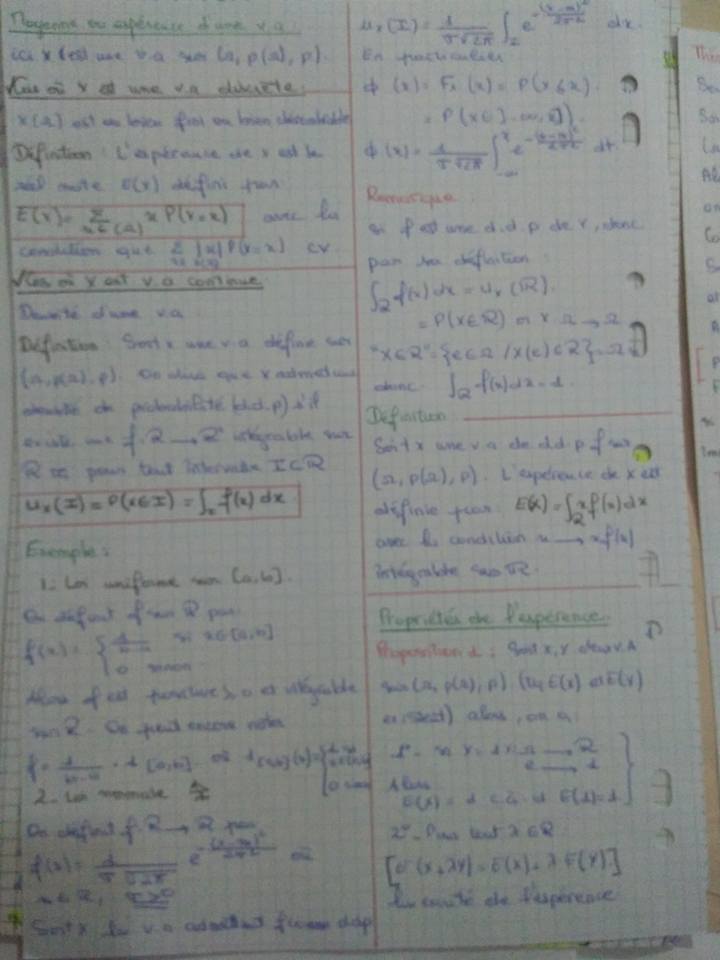 Moyenne ou espérance d'une v.a.
ici X est une v.a sur (Ω, P(Ω), P).
Cas où X est une v.a discrète.
X(Ω) est ou bien fini ou bien dénombrable
Définition : L'espérance de X est le
réel noté E(X) défini par
E(X) = Σ x P(X=x) avec la
x∈X(Ω)
condition que Σ |x| P(X=x) CV.
Cas où X est v.a continue
Densité d'une v.a
Définition : Soit X une v.a définie sur
(Ω, P(Ω), P). On dira que X admet une
densité de probabilité (d.d.p) s'il
existe une f: ℝ → ℝ intégrable sur
ℝ pour tout intervalle I⊂ℝ
u_X(I) = P(X∈I) = ∫_I f(x) dx
Exemple :
1. Loi uniforme sur [a,b].
On définit f sur ℝ par:
f(x) = { 1/(b-a) si x∈[a,b]
0 sinon
Alors f est positive ≥ 0 et intégrable
sur ℝ. On peut encore noter
f = 1/(b-a) · 1 [a,b] où 1[a,b](x) =
0 sinon
2. Loi normale
On définit f: ℝ → ℝ par
f(x) = 1/(σ√2π) e^{-(x-m)²/2σ²} où
m∈ℝ, σ>0
Soit X la v.a admettant f comme ddp
u_X(I) = 1/(σ√2π) ∫_I e^{-(x-m)²/2σ²} dx.
En particulier
ϕ(x) = F_X(x) = P(X≤x).
= P(X∈]-∞, x]).
ϕ(x) = 1/(σ√2π) ∫_{-∞}^x e^{-(t-m)²/2σ²} dt.
Remarque
si f est une d.d.p de X, donc
par sa définition :
∫_ℝ f(x) dx = u_X(ℝ).
= P(X∈ℝ) or X Ω → Ω
"X∈ℝ" = {e∈Ω / X(e)∈ℝ} = Ω
donc ∫_ℝ f(x)dx = 1.
Définition
Soit X une v.a de d.d.p f sur
(Ω, P(Ω), P). L'espérance de X est
définie par E(X) = ∫_ℝ x f(x) dx
avec la condition x → x f(x)
intégrable sur ℝ.
Propriétés de l'espérance.
Proposition 1 : Soit X, Y deux v.a
sur (Ω, P(Ω), P) (tq E(X) et E(Y)
existent) alors, on a :
1°- si X = 1 Ω → ℝ
e → 1
Alors
E(X) = 1 c.à.d E(1)=1
2°- Pour tout λ∈ℝ
[E(X+λY) = E(X)+λ E(Y)]
linéarité de l'espérance